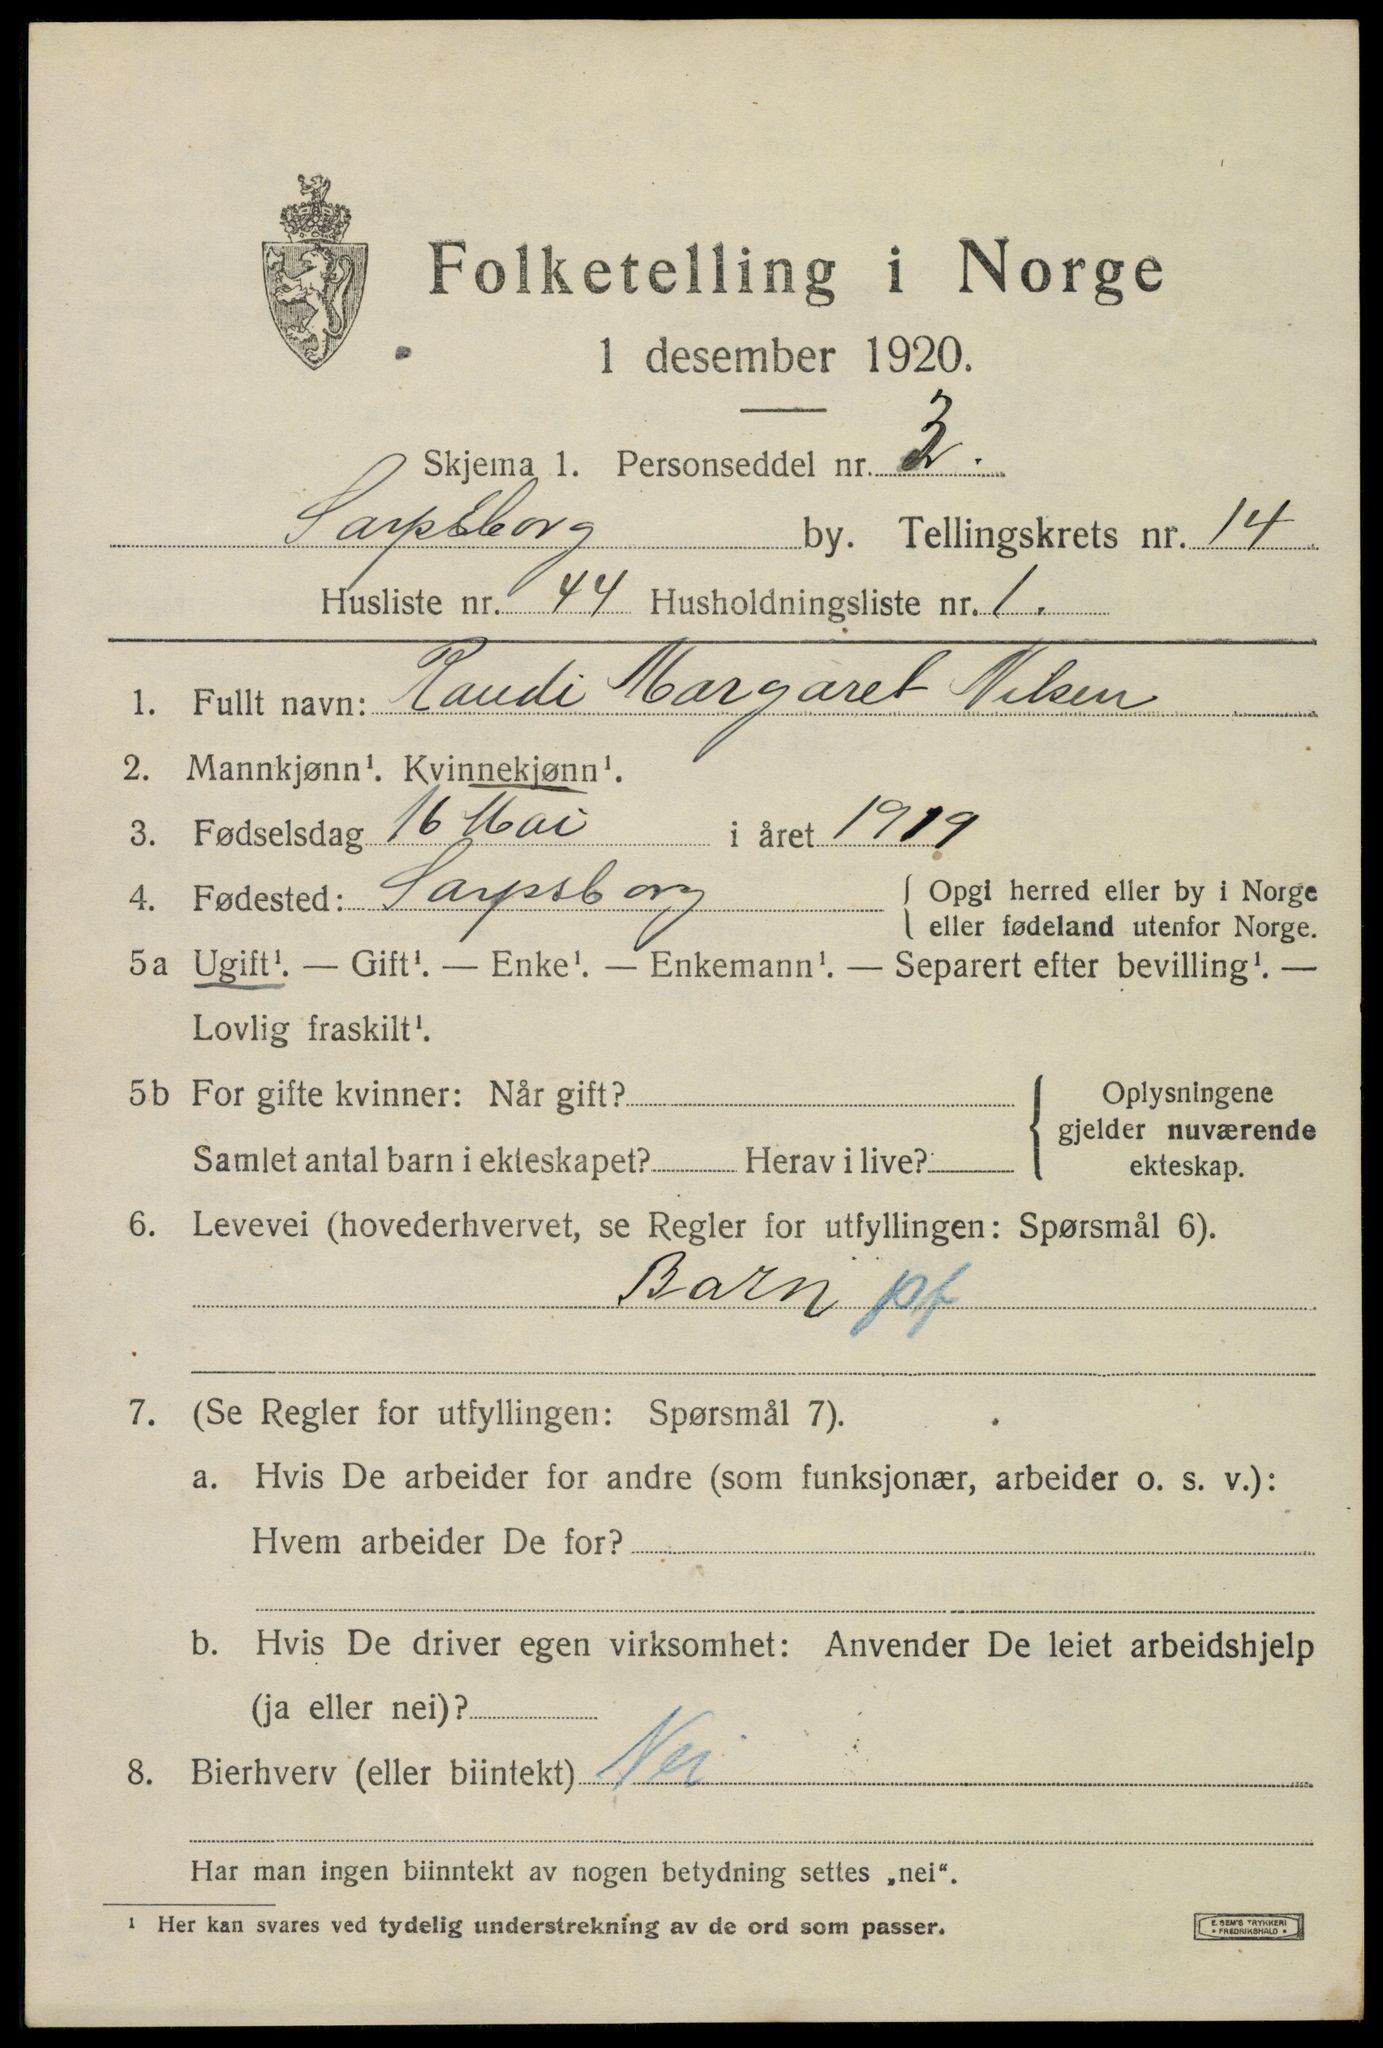 Folketelling i Norge
1 desember 1920.
Skjema 1. Personseddel nr. 3.
Sarpsborg by. Tellingskrets nr. 14
Husliste nr. 44 Husholdningsliste nr. 1.
1. Fullt navn: Randi Margaret Nilsen
2. Mannkjønn¹. Kvinnekjønn¹.
3. Fødselsdag 16 Mai i året 1919
4. Fødested: Sarpsborg { Opgi herred eller by i Norge
eller fødeland utenfor Norge.
5a Ugift¹. — Gift¹. — Enke¹. — Enkemann¹. — Separert efter bevilling¹. —
Lovlig fraskilt¹.
5b For gifte kvinner: Når gift? { Oplysningene
gjelder nuværende
Samlet antal barn i ekteskapet? Herav i live? ekteskap.
6. Levevei (hovederhvervet, se Regler for utfyllingen: Spørsmål 6).
Barn pf
7. (Se Regler for utfyllingen: Spørsmål 7).
a. Hvis De arbeider for andre (som funksjonær, arbeider o. s. v.):
Hvem arbeider De for?
b. Hvis De driver egen virksomhet: Anvender De leiet arbeidshjelp
(ja eller nei)?
8. Bierhverv (eller biintekt) Nei
Har man ingen biinntekt av nogen betydning settes „nei“.
¹ Her kan svares ved tydelig understrekning av de ord som passer.
E. SEM'S TRYKKERI
FREDRIKSHALD